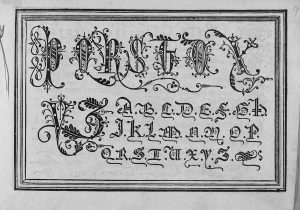 P Q R S T V X
Y Z
A.B.C.D.E.F.G.H
J K L M N O P.
Q.R.S.T.U.X.Y.Z.